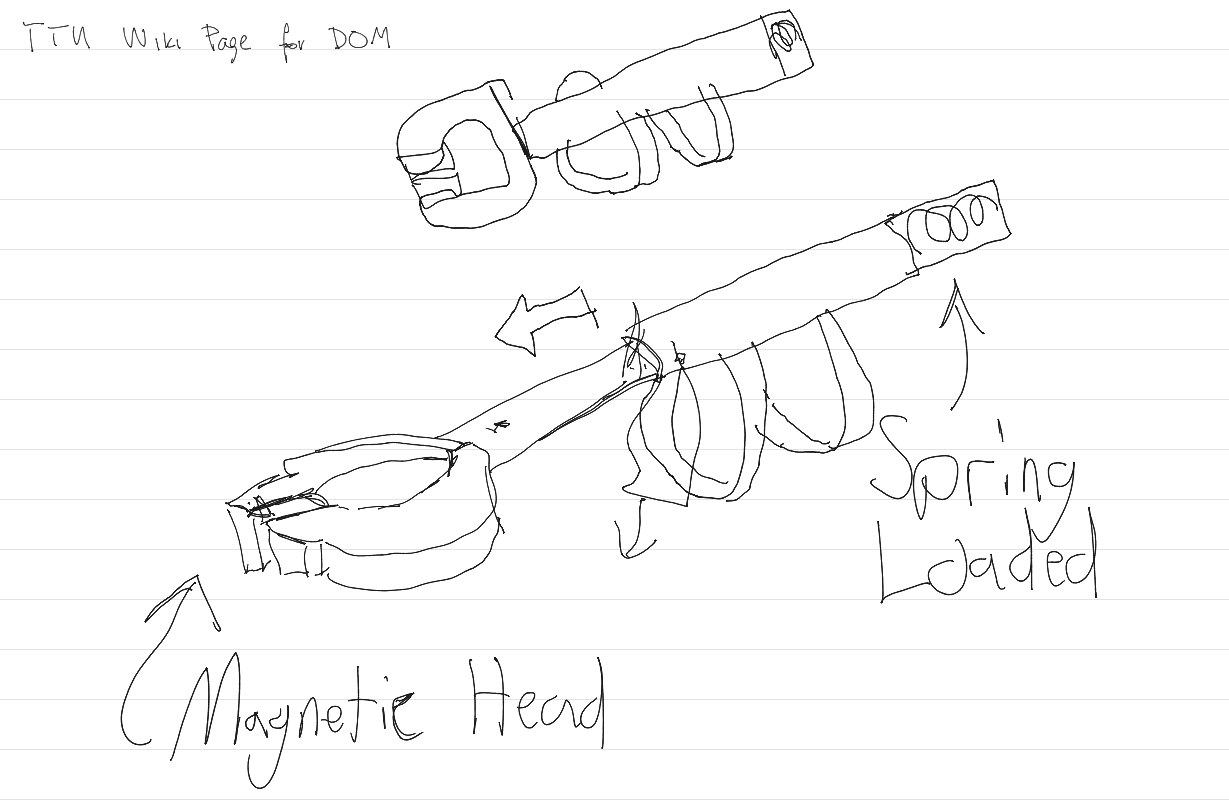 TTU Wiki Page for DOM
Spring
Loaded
Magnetic Head